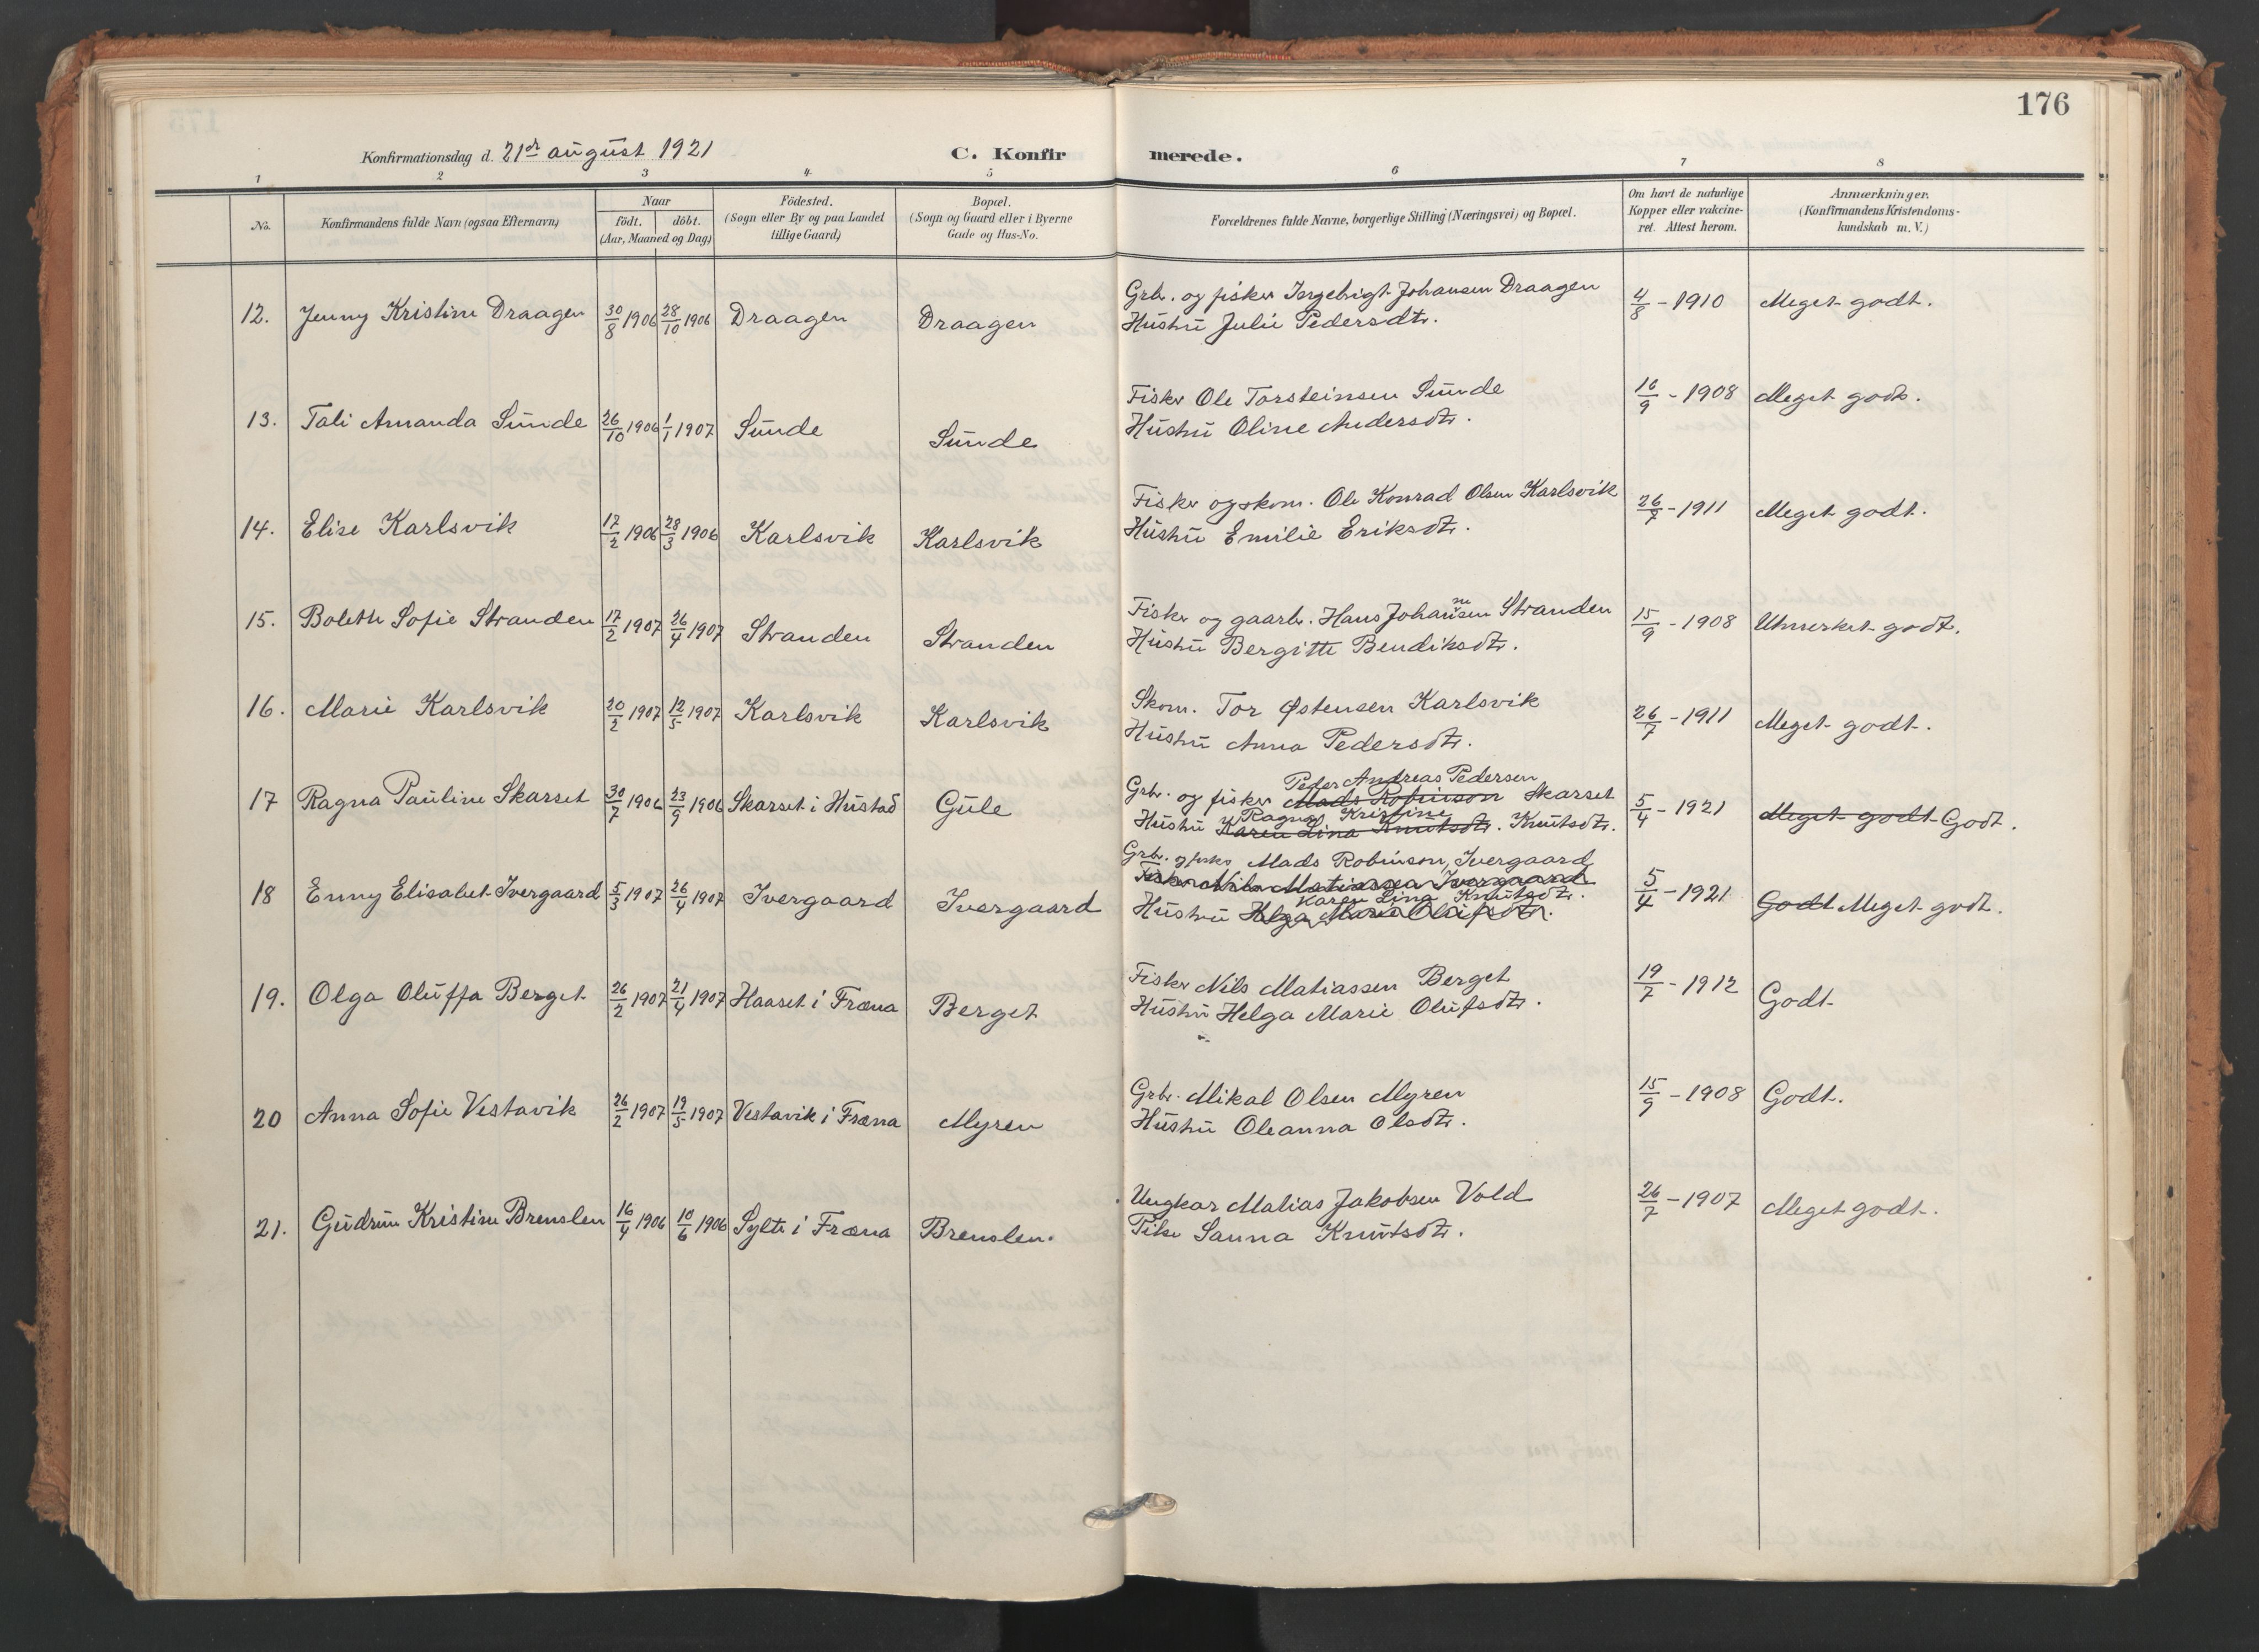 176
Konfirmationsdag d. 21de august 1921
C. Konfirmerede.
1 2 3 4 5 6 7 8
No.
Konfirmandens fulde Navn (ogsaa Efternavn)
Naar
födt. döbt.
(Aar, Maaned og Dag)
Födested.
(Sogn eller By og paa Landet
tillige Gaard)
Bopæl.
(Sogn og Gaard eller i Byerne
Gade og Hus-No.
Forældrenes fulde Navne, borgerlige Stilling (Næringsvei) og Bopæl.
Om havt de naturlige
Kopper eller vakcine-
ret. Attest herom.
Anmærkninger.
(Konfirmandens Kristendoms-
kundskab m. V.)
12. Jenny Kristine Draagen 30/8 1906 28/10 1906 Draagen Draagen
Grbr. og fisker Ingebrigt Johansen Draagen
Hustru Julie Pedersdtr.
4/8 - 1910 Meget godt.
13. Tali Amanda Sunde 26/10 1906 1/1 1907 Sunde Sunde
Fisker Ole Torsteinsen Sunde
Hustru Oline Andersdtr.
16/9 - 1908 Meget godt.
14. Elise Karlsvik 17/2 1906 28/3 1906 Karlsvik Karlsvik
Fisker og skom. Ole Konrad Olsen Karlsvik
Hustru Emilie Eriksdtr.
26/7 - 1911 Meget godt.
15. Boleth Sofie Stranden 17/2 1907 26/4 1907 Stranden Stranden
Fisker og gaarbr. Hans Johansen Stranden
Hustru Bergitte Bendiksdtr.
15/9 - 1908 Utmerket godt.
16. Marie Karlsvik 20/2 1907 12/5 1907 Karlsvik Karlsvik
Skom. Tor Østensen Karlsvik
Hustru Anna Pedersdtr.
26/7 - 1911 Meget godt.
17 Ragna Pauline Skarset 30/7 1906 23/9 1906 Skarset i Hustad Gule
Peder Andreas Pedersen
Grbr. og fisker Mads Robinson Skarset
Ragna Kristine
Hustru Karen Lina Knutsdtr. Knutsdtr.
5/4 - 1921 Meget godt Godt.
18 Enny Elisabet Ivergaard 5/3 1907 26/4 1907 Ivergaard Ivergaard
Grbr. og fisker Mads Robinson, Ivergaard
Fisker Nils Matiassen Ivergaard
Karen Lina Knutsdtr.
Hustru Helga Marie Olufsdtr.
5/4 - 1921 Godt Meget godt.
19. Olga Oluffa Berget 26/2 1907 21/4 1907 Haaset i Fræna Berget
Fisker Nils Matiassen Berget
Hustru Helga Marie Olufsdtr.
19/7 - 1912 Godt
20 Anna Sofie Vestavik 26/2 1907 19/5 1907 Vestavik i Fræna Myren
Grbr. Mikal Olsen Myren
Hustru Oleanna Olsdtr.
15/9 - 1908 Godt.
21. Gudrun Kristine Brenslen 16/4 1906 10/6 1906 Sylte i Fræna Brenslen.
Ungkar Matias Jakobsen Vold
Pike Sanna Knutsdtr.
26/7 - 1907 Meget godt.